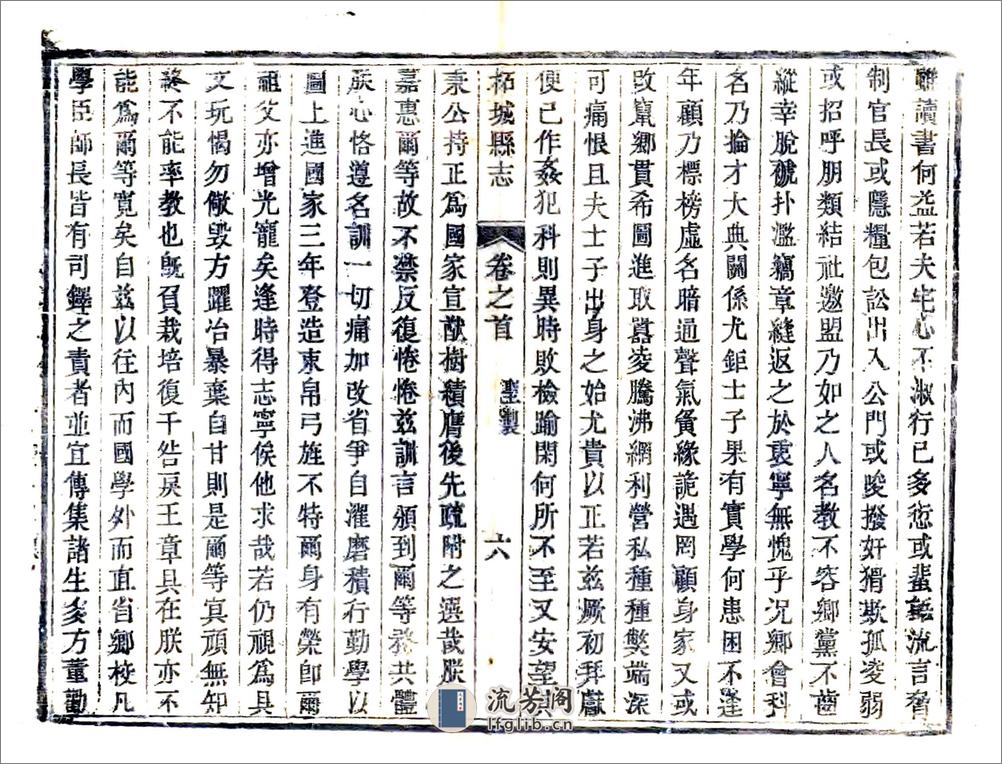 雖讀書何益若夫宅心不淑行已多愆或蜚語流言脅
制官長或隱糧包訟出入公門或唆撥奸猾欺孤凌弱
或招呼朋類結社邀盟乃如之人名教不容鄉黨不齒
縱幸脫褫扑濫竊章縫返之於衷寧無愧乎況鄉會科
名乃掄才大典關係尤鉅士子果有實學何患困不逢
年顧乃標榜虛名暗通聲氣夤緣詭遇罔顧身家又或
改竄鄉貫希圖進取囂凌騰沸網利營私種種獘端深
可痛恨且夫士子出身之始尤貴以正若茲厥初拜獻
便已作姦犯科則異時敗檢踰閑何所不至又安望其
柘城縣志 卷之首 聖製 六
秉公持正爲國家宣猷樹績膺後先疏附之選哉朕
嘉惠爾等故不禁反復惓惓茲訓言頒到爾等務共體
朕心恪遵名訓一切痛加改省爭自濯磨積行勤學以
圖上進國家三年登造束帛弓旌不特爾身有榮卽爾
祖父亦增光寵矣逢時得志寧俟他求哉若仍視爲具
文玩愒勿儆毀方躍冶暴棄自甘則是爾等冥頑無知
終不能率教也旣負栽培復干咎戾王章具在朕亦不
能爲爾等寬矣自茲以往內而國學外而直省鄉校凡
學臣師長皆有司鐸之責者並宜傳集諸生多方董勸
流芳阁
lfglib.cn